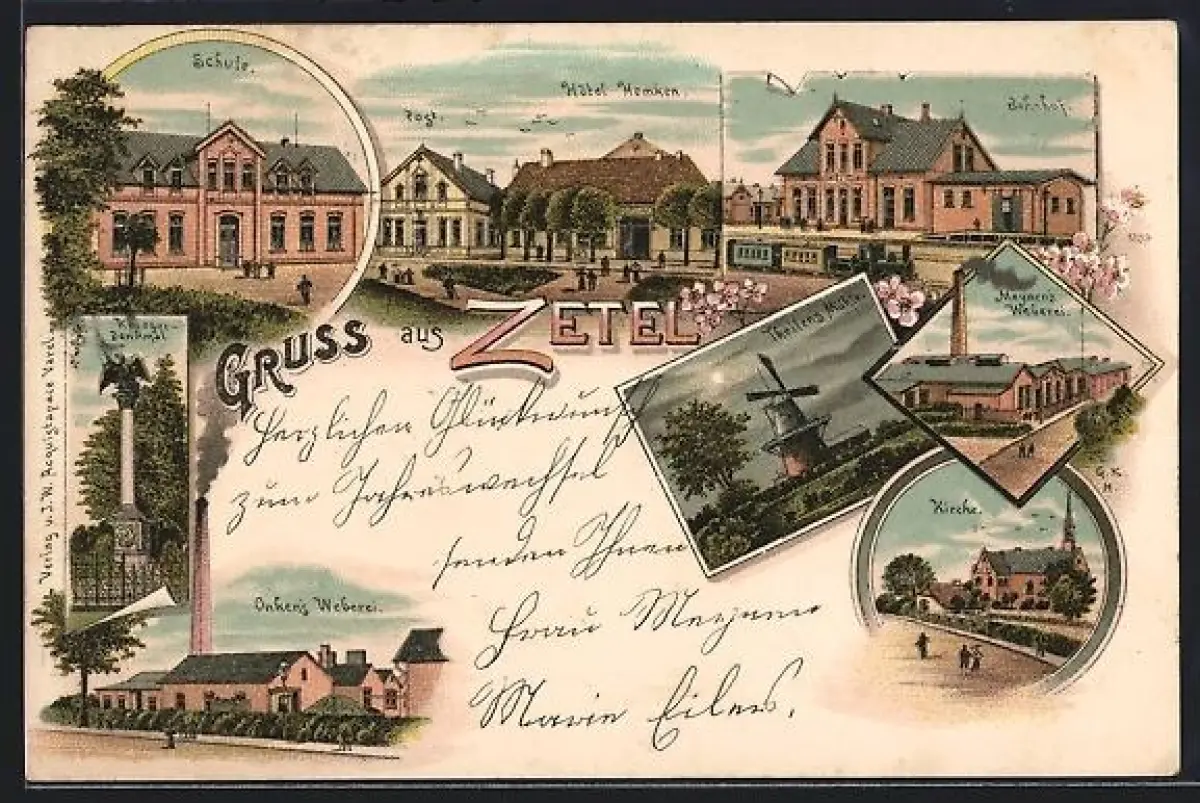 Schule.
Post.
Hôtel Hemken.
Bahnhof.
Krieger-
denkmal
GRUSS aus ZETEL
Theilens Mühle.
Meynens
Weberei.
Kirche.
Onken's Weberei.
Verlag v. J. W. Acquistapace Varel.
G. K.
H.
Herzlichen Glückwunsch
zum Jahreswechsel
senden Ihnen
Frau
Marie Eilers.